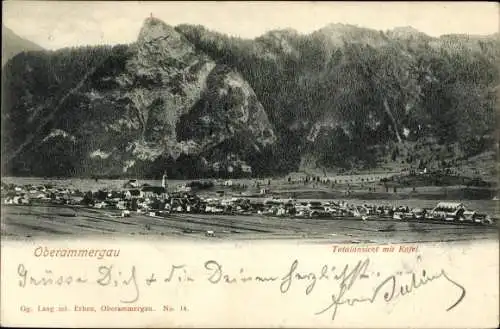 Oberammergau
Totalansicht mit Kofel
Grüsse Dich + die Deinen herzlichst
Gg. Lang sel. Erben, Oberammergau. No. 14.